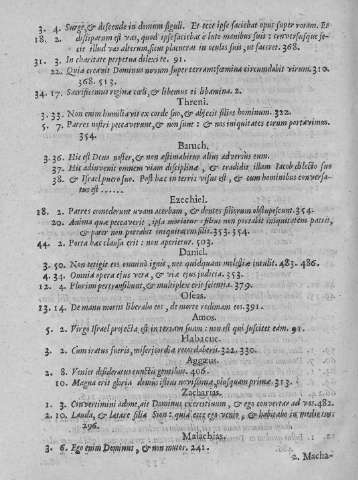 3. 4. Surge, & descende in domum figuli. Et ecce ipse faciebat opus super rotam. Et
18. 2. dissipatum est vas, quod ipse faciebat è luto manibus suis: conversusque fe-
cit illud vas alterum, sicut placuerat in oculis suis, ut faceret. 368.
31. 3. In charitate perpetua dilexi te. 91.
22. Quia creavit Dominus novum super terram: fœmina circumdabit virum. 310.
368. 513.
34. 17. Sacrificemus reginæ cæli, & libemus ei libamina. 2.
Threni.
3. 33. Non enim humiliavit ex corde suo, & abjecit filios hominum. 322.
5. 7. Patres nostri peccaverunt, & non sunt: & nos iniquitates eorum portavimus.
354.
Baruch.
3. 36. Hic est Deus noster, & non æstimabitur alius adversus eum.
37. Hic adinvenit omnem viam disciplinæ, & tradidit illam Jacob dilecto suo
38. & Israel puero suo. Post hæc in terris visus est, & cum hominibus conversa-
tus est
Ezechiel.
18. 2. Patres comederunt uvam acerbam, & dentes filiorum obstupescunt. 354.
20. Anima quæ peccaverit, ipsa morietur: filius non portabit iniquitatem patris,
& pater non portabit iniquitatem filii. 353. 354.
44. 2. Porta hæc clausa erit: non aperietur. 503.
Daniel.
3. 50. Non tetigit eos omninò ignis, nec quidquam molestiæ intulit. 483. 486.
4. 34. Omnia opera ejus vera, & viæ ejus judicia. 353.
12. 4. Plurimi pertransibunt, & multiplex erit scientia. 379.
Oseas.
13. 14. De manu mortis liberabo eos, de morte redimam eos. 391.
Amos.
5. 2. Virgo Israel projecta est in terram suam: non est qui suscitet eam. 91.
Habacuc.
3. 2. Cum iratus fueris, misericordiæ recordaberis. 322. 330.
Aggæus.
2. 8. Veniet desideratus cunctis gentibus. 406.
10. Magna erit gloria domus istius novissimæ, plusquam primæ. 313.
Zacharias.
1. 3. Convertimini ad me, ait Dominus exercituum, & ego convertar ad vos. 482.
2. 10. Lauda, & lætare filia Sion: quia ecce ego venio, & habitabo in medio tui.
296.
Malachias.
3. 6. Ego enim Dominus, & non mutor. 241.
2. Macha-